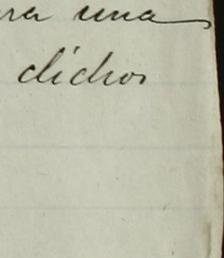 ra una
dichos